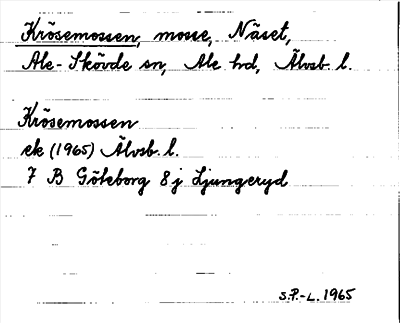 Krösemossen, mosse, Näset,
Ale-Skövde sn, Ale hd, Älvsb. l.
Krösemossen
ek (1965) Älvsb. l.
7 B Göteborg 8 j Ljungeryd
S.P.-L. 1965